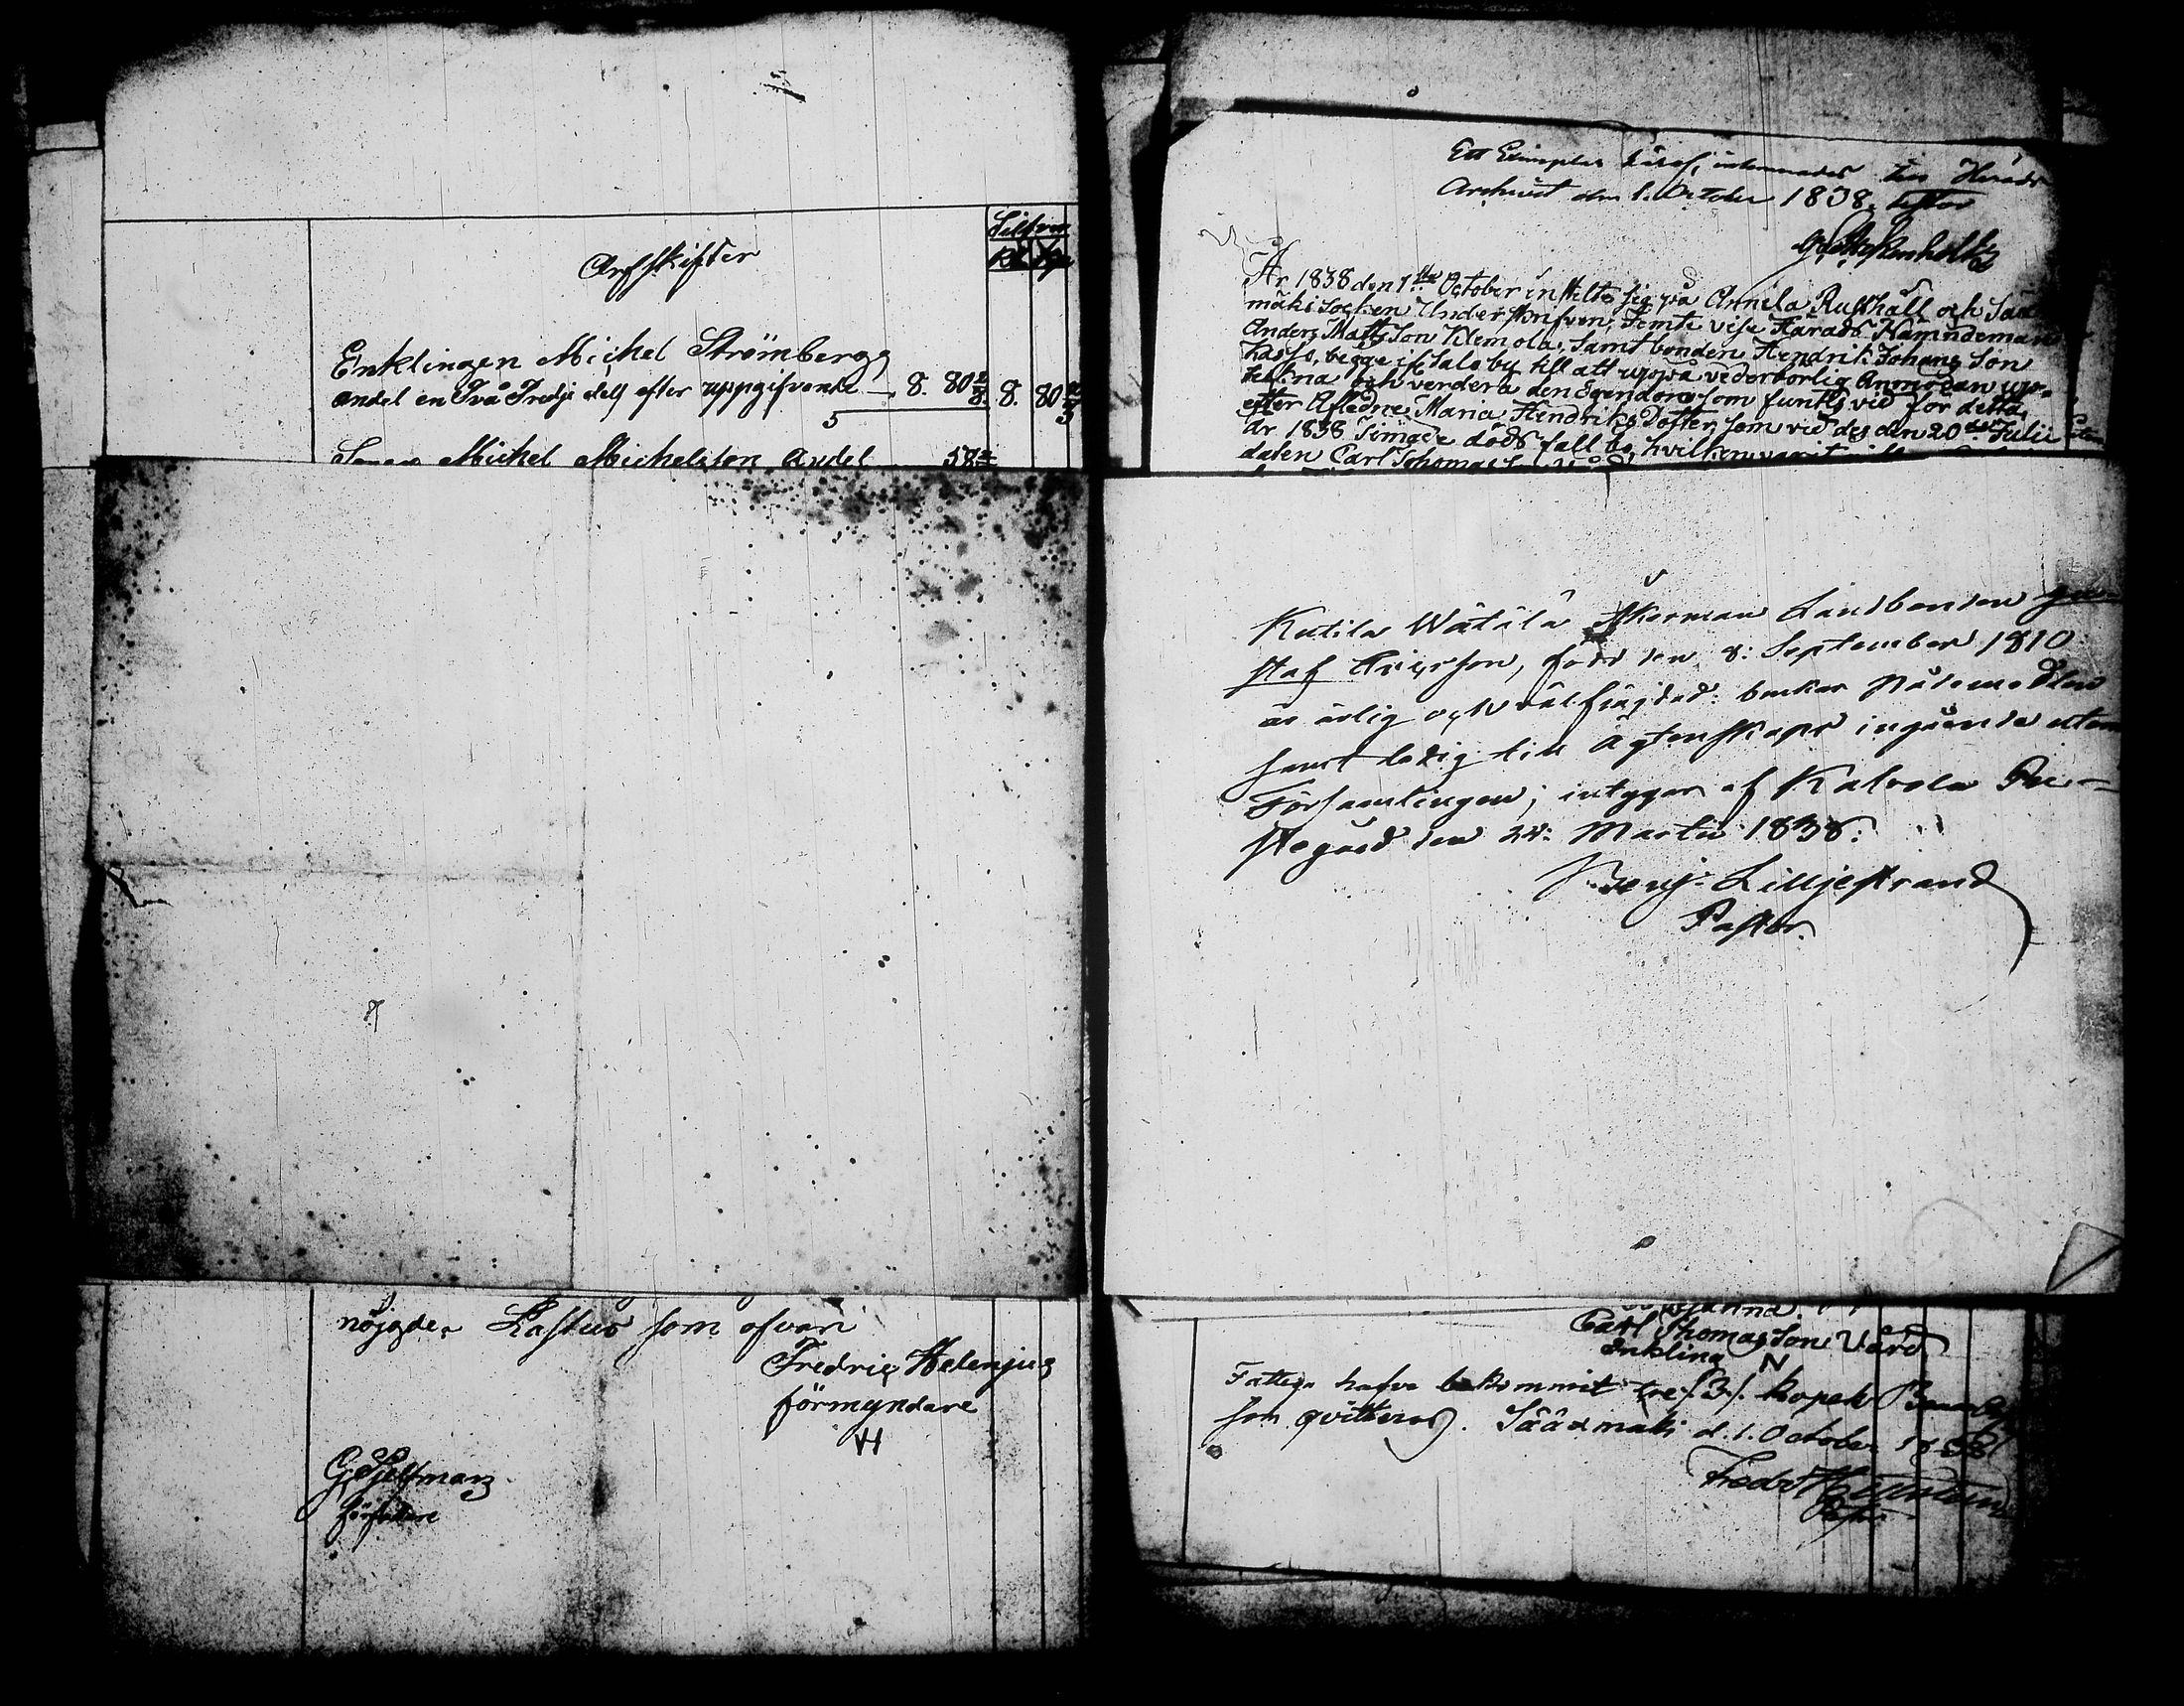 Silfver
Rbl Kop
Arfskiften
Enklingen Michel Strömbergs
andel en Två Tredje dels efter uppgifvande — 8. 80 2/3 8. 80 2/3
Sonen Michel Michelsson Andel 58
nöjgde. Rastus som ofvan
Fredric Helenjus
förmyndare
G Hjelfman
författare
Ett Exemplar häraf, inlemnades till Härads
Archivet den 1. October 1838.
År 1838 den 1ste October instelte sig på Annila Rusthåll och Sääx
mäki Socken Underskrifven, Femte vise Härads Nämndeman
Anders Matts Son Klemola, Samt bonden Hendrik Johans Son
Kasso, begge if Salo by till att uppå vederbörlig Anmodan upp-
tekna och verdera den Egendom som funtes vid för detta
efter Afledne Maria Hendriks Dotter, som vid des den 20de Julii
år 1838 Timade döds fall be hvilken
daten Carl Thomas Son
Kutila Wätälä Åkerman Landbonden Gu-
staf Ericsson, född den 8: September 1810
är ärlig och välfrägdad: bruker Nådemedlen
samt ledig till Ägtenskaps ingående utom
Församlingen; intygar af Kalvola Pre-
stegård den 24: Martii 1838:
Benj. Lilljestrand
Pastor.
Carl Thomas Son Vård
Enkling N
Fattige hafva bekommit tre /3/. kopek Banco
som qvitteras. Sääxmäki d. 1. October 1838
Fredr